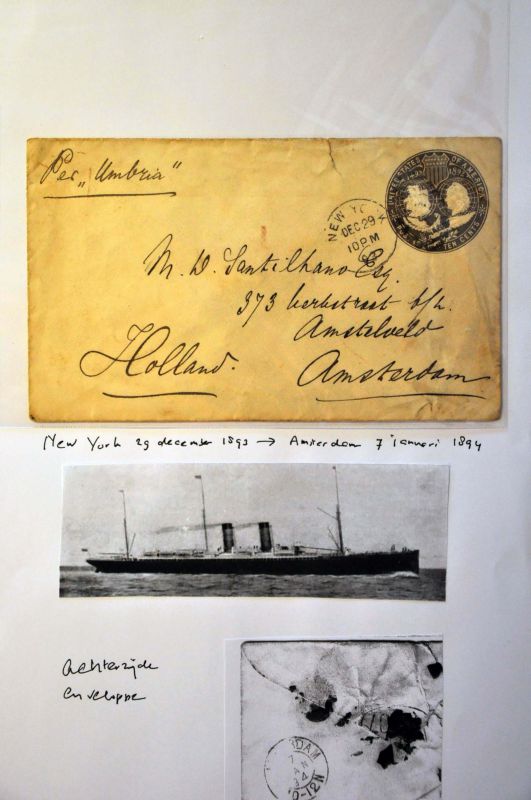 Per „Umbria"
UNITED STATES OF AMERICA
1492 1892
TEN CENTS
NEW YO
DEC 29
10 PM
93
M. D. Santilhano Esq.
373 Kerkstraat b/h.
Amstelveld
Holland.
Amsterdam
New York 29 december 1893 → Amsterdam 7 januari 1894
Achterzijde
enveloppe
DAM
7
AN
94
0-12N